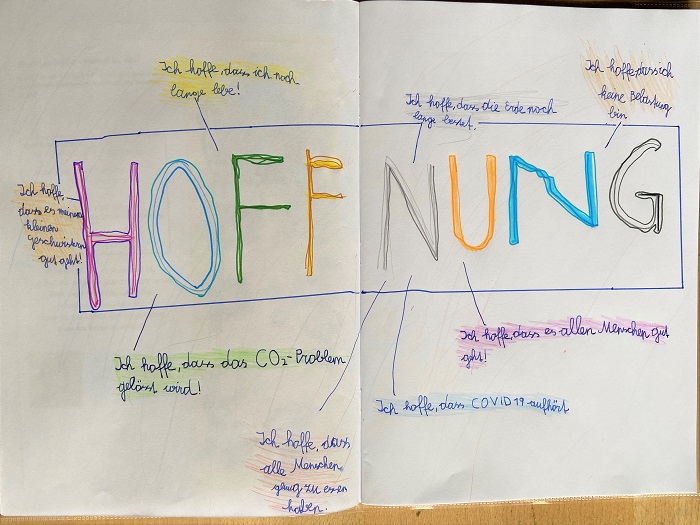 Ich hoffe, dass ich noch
lange lebe!
Ich hoffe, dass die Erde noch
lange bestet.
Ich hoffe, dass ich
keine Belastung
bin
HOFFNUNG
Ich hoffe,
dass es meinen
kleinen
geschwistern
gut geht!
Ich hoffe, dass das CO₂-Problem
gelösst wird!
Ich hoffe, dass es allen Menschen gut
geht!
Ich hoffe, dass COVID 19 aufhört
Ich hoffe, dass
alle Menschen
genug zu essen
haben.